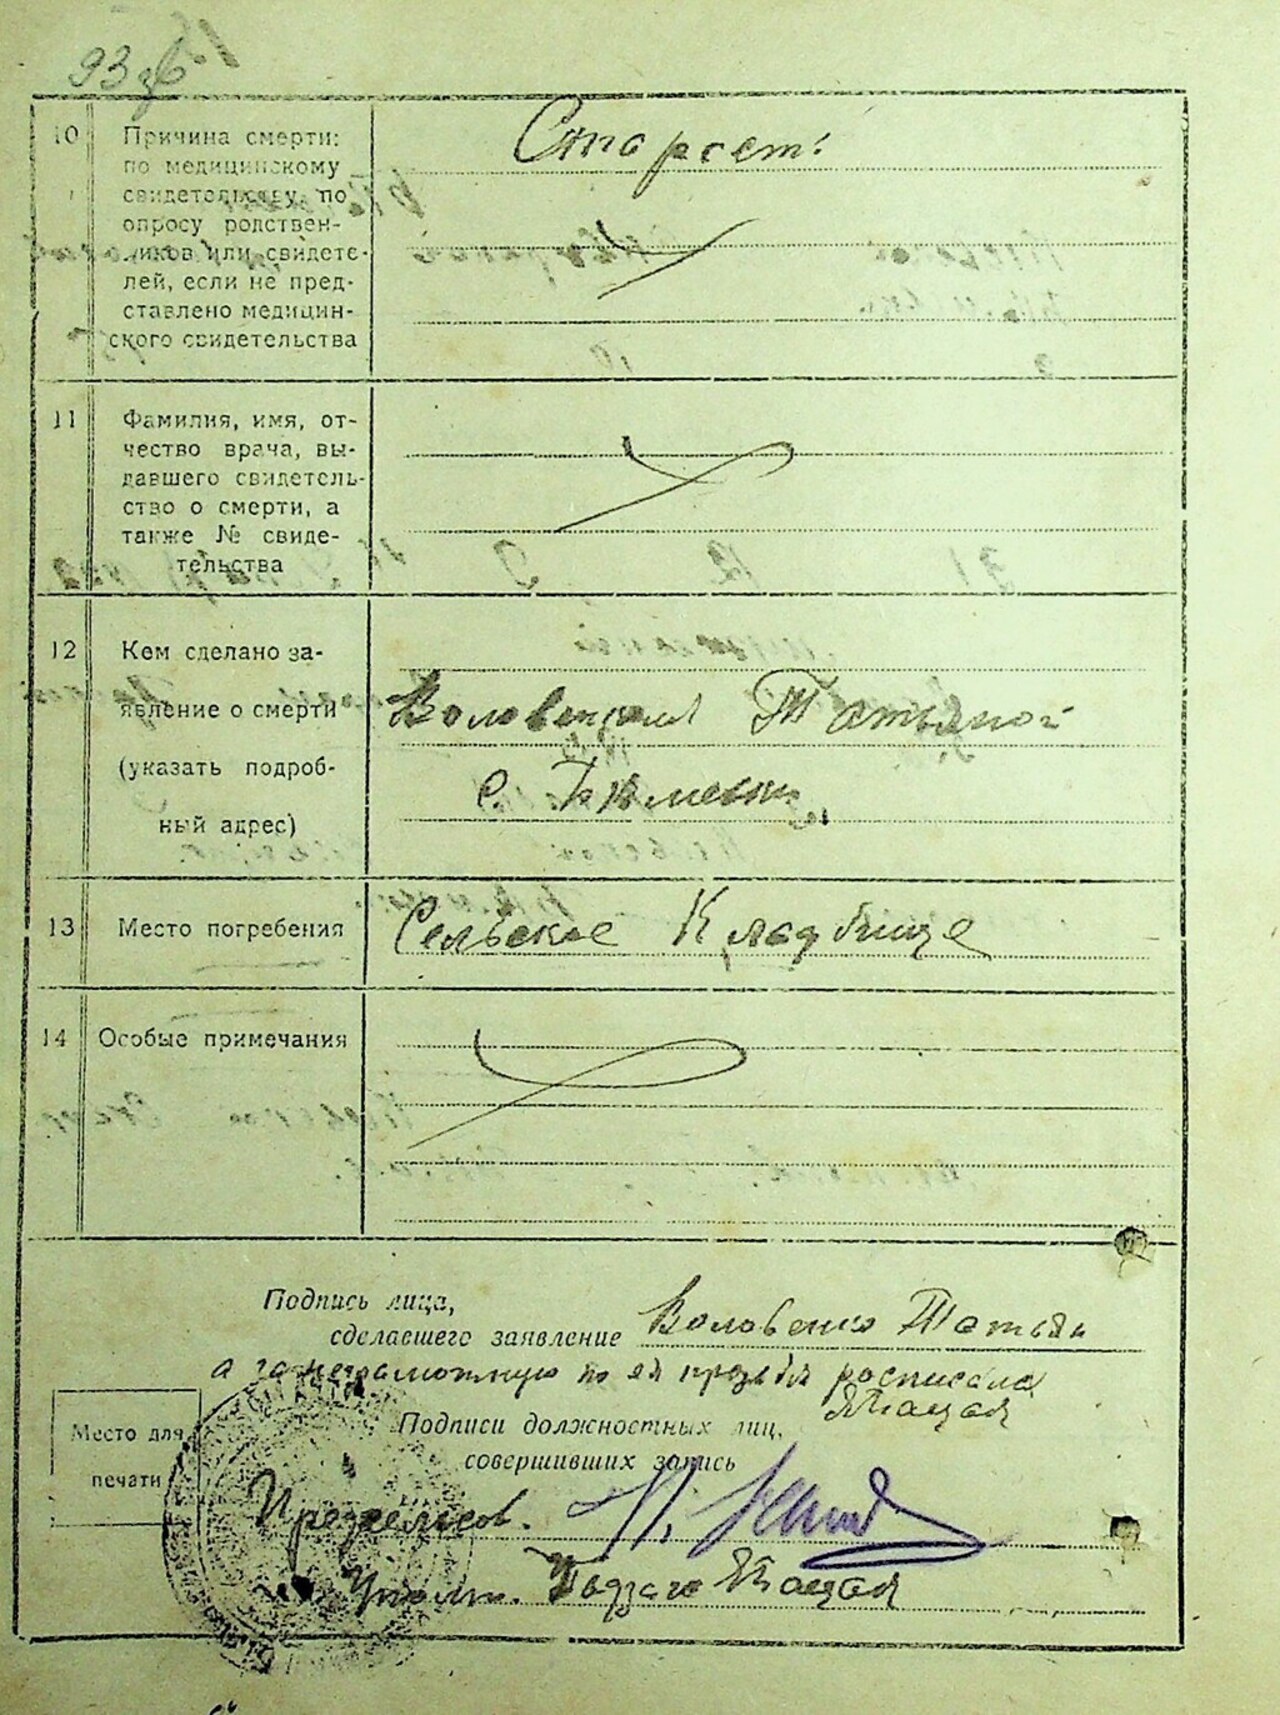 93 зб
10 Причина смерти: Старсеть
по медицинскому
свидетельству, по
опросу родствен-
ников или свидете-
лей, если не пред-
ставлено медицин-
ского свидетельства
11 Фамилия, имя, от-
чество врача, вы-
давшего свидетель-
ство о смерти, а
также № свиде-
тельства
12 Кем сделано за-
явление о смерти
Татьяной
(указать подроб-
с.
ный адрес)
13 Место погребения Сельское Кладбище
14 Особые примечания
Подпись лица,
сделавшего заявление Воловенко Татьян
а за неграмотную по ея прозьби росписала
Место для
печати
Подписи должностных лиц,
совершивших запись
Предсельсов.
Уполн.